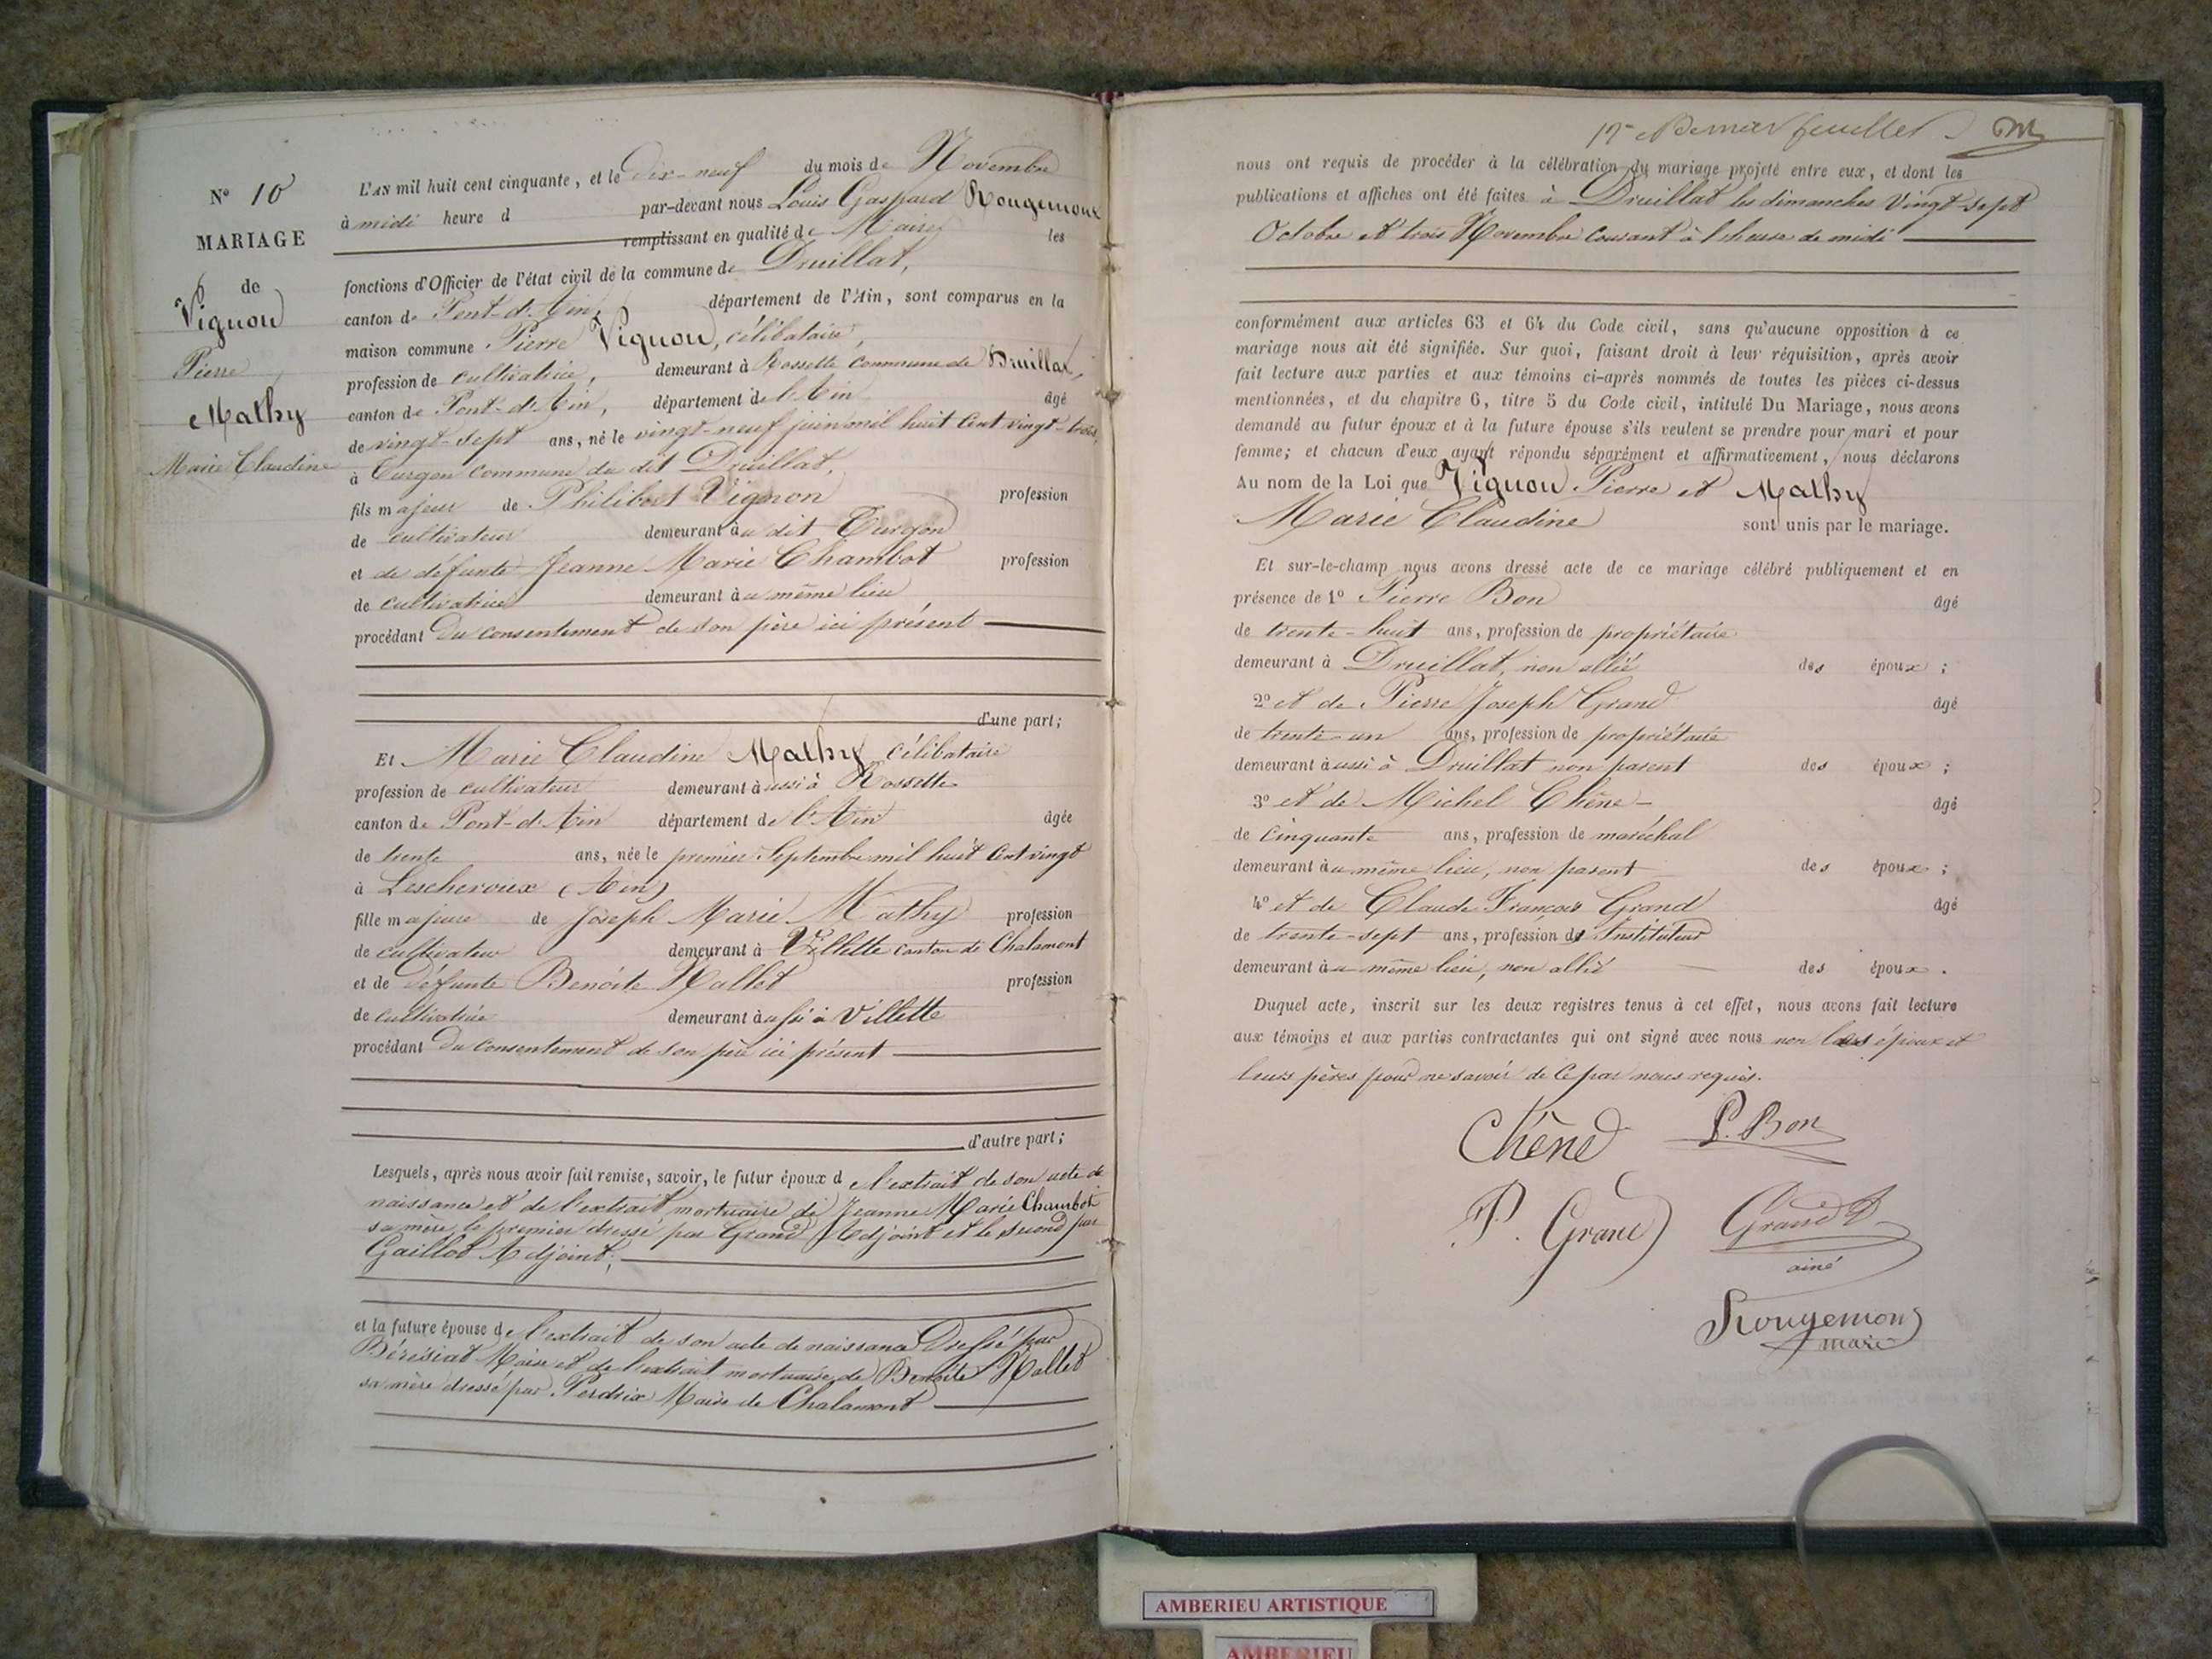 N° 10
MARIAGE
de
Vignon
Pierre
Mathy
Marie Claudine
L'AN mil huit cent cinquante, et le dix-neuf du mois de Novembre
à midi heure d par-devant nous Louis Gaspard Rougemont
remplissant en qualité de Maire les
fonctions d'Officier de l'état civil de la commune de Druillat,
canton de Pont-d'Ain, département de l'Ain, sont comparus en la
maison commune Pierre Vignon, célibataire,
profession de cultivatrice, demeurant à Rossette commune de Druillat,
canton de Pont-d'Ain, département de l'Ain âgé
de vingt-sept ans, né le vingt-neuf juin mil huit cent vingt-trois,
à Turgon commune du dit Druillat,
fils majeur de Philibert Vignon profession
de cultivateur demeurant au dit Turgon
et de défunte Jeanne Marie Chambot profession
de cultivatrice demeurant au même lieu
procédant du consentement de son père ici présent
d'une part;
Et Marie Claudine Mathy célibataire
profession de cultivateur demeurant aussi à Rossette
canton de Pont-d'Ain département de l'Ain âgée
de trente ans, née le premier Septembre mil huit cent vingt
à Lescheroux (Ain)
fille majeure de Joseph Marie Mathy profession
de cultivateur demeurant à Villette canton de Chalamont
et de défunte Benoite Hallet profession
de cultivatrice demeurant aussi à Villette
procédant du consentement de son père ici présent
d'autre part;
Lesquels, après nous avoir fait remise, savoir, le futur époux de l'extrait de son acte de
naissance et de l'extrait mortuaire de Jeanne Marie Chambot
sa mère, le premier dressé par Grand Adjoint et le second par
Gaillot Adjoint;
et la future épouse de l'extrait de son acte de naissance Dressé par
Bérésiat Maire et de l'extrait mortuaire de Benoite Hallet
sa mère dressé par Perdrix Maire de Chalamont
feuillet
nous ont requis de procéder à la célébration du mariage projeté entre eux, et dont les
publications et affiches ont été faites à Druillat les dimanches vingt-sept
Octobre et trois Novembre courant à l'heure de midi
conformément aux articles 63 et 64 du Code civil, sans qu'aucune opposition à ce
mariage nous ait été signifiée. Sur quoi, faisant droit à leur réquisition, après avoir
fait lecture aux parties et aux témoins ci-après nommés de toutes les pièces ci-dessus
mentionnées, et du chapitre 6, titre 5 du Code civil, intitulé Du Mariage, nous avons
demandé au futur époux et à la future épouse s'ils veulent se prendre pour mari et pour
femme; et chacun d'eux ayant répondu séparément et affirmativement, nous déclarons
Au nom de la Loi que Vignon Pierre et Mathy
Marie Claudine sont unis par le mariage.
Et sur-le-champ nous avons dressé acte de ce mariage célébré publiquement et en
présence de 1° Pierre Bon âgé
de trente-huit ans, profession de propriétaire
demeurant à Druillat, non allié des époux ;
2° et de Pierre Joseph Grand âgé
de trente-un ans, profession de propriétaire
demeurant aussi à Druillat non parent des époux ;
3° et de Michel Chêne âgé
de cinquante ans, profession de maréchal
demeurant au même lieu, non parent des époux ;
4° et de Claude François Grand âgé
de trente-sept ans, profession d'Instituteur
demeurant au même lieu, non allié des époux .
Duquel acte, inscrit sur les deux registres tenus à cet effet, nous avons fait lecture
aux témoins et aux parties contractantes qui ont signé avec nous non les époux et
leurs pères pour ne savoir de ce par nous requis.
Chêne P. Bon
P. Grand Grand
ainé
Rougemont
maire
AMBERIEU ARTISTIQUE
AMBERIEU